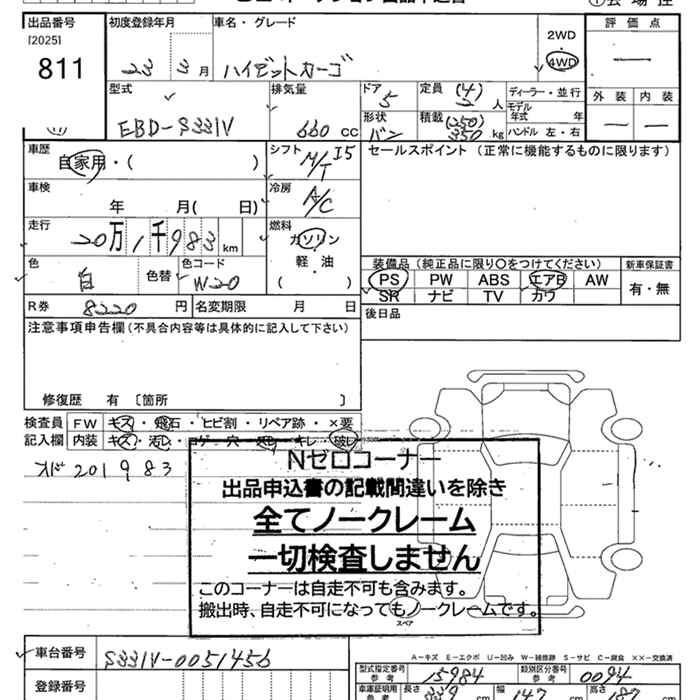 出品番号
[2025]
811
初度登録年月
23年 3月
車名・グレード
ハイゼットカーゴ
2WD
4WD
評価点
—
外装 内装
— —
型式
EBD-S331V
排気量
660 cc
ドア
5
形状
バン
定員 (4)
2 人
積載 (250)
350 kg
ディーラー・並行
モデル年式 年
ハンドル 左・右
車歴
自家用・( )
シフト
M/T I5
セールスポイント (正常に機能するものに限ります)
車検
年 月( 日)
冷房
A/C
走行
20万1千983 km
燃料
ガソリン
軽・油
( )
色
白
色替
色コード
W20
装備品 (純正品に限り〇をつけてください)
新車保証書
PS PW ABS エアB AW
SR ナビ TV カワ
有・無
R券 8220 円
名変期限 月 日
後日品
注意事項申告欄(不具合内容等は具体的に記入して下さい)
修復歴 有 〔箇所 〕
検査員記入欄
FW キズ・飛石・ヒビ割・リペア跡・×要
内装 キズ・汚レ・コゲ・穴・キレ・破レ
201983
Nゼロコーナー
出品申込書の記載間違いを除き
全てノークレーム
一切検査しません
このコーナーは自走不可も含みます。
搬出時、自走不可になってもノークレームです。
スペア
車台番号
S331V-0051456
登録番号
A-キズ E-エクボ U-凹み W-補修跡 S-サビ C-腐食 XX-交換済
型式指定番号 参考
15984
類別区分番号 参考
0094
車庫証明用 参考
長さ 339
幅 147
高さ 187